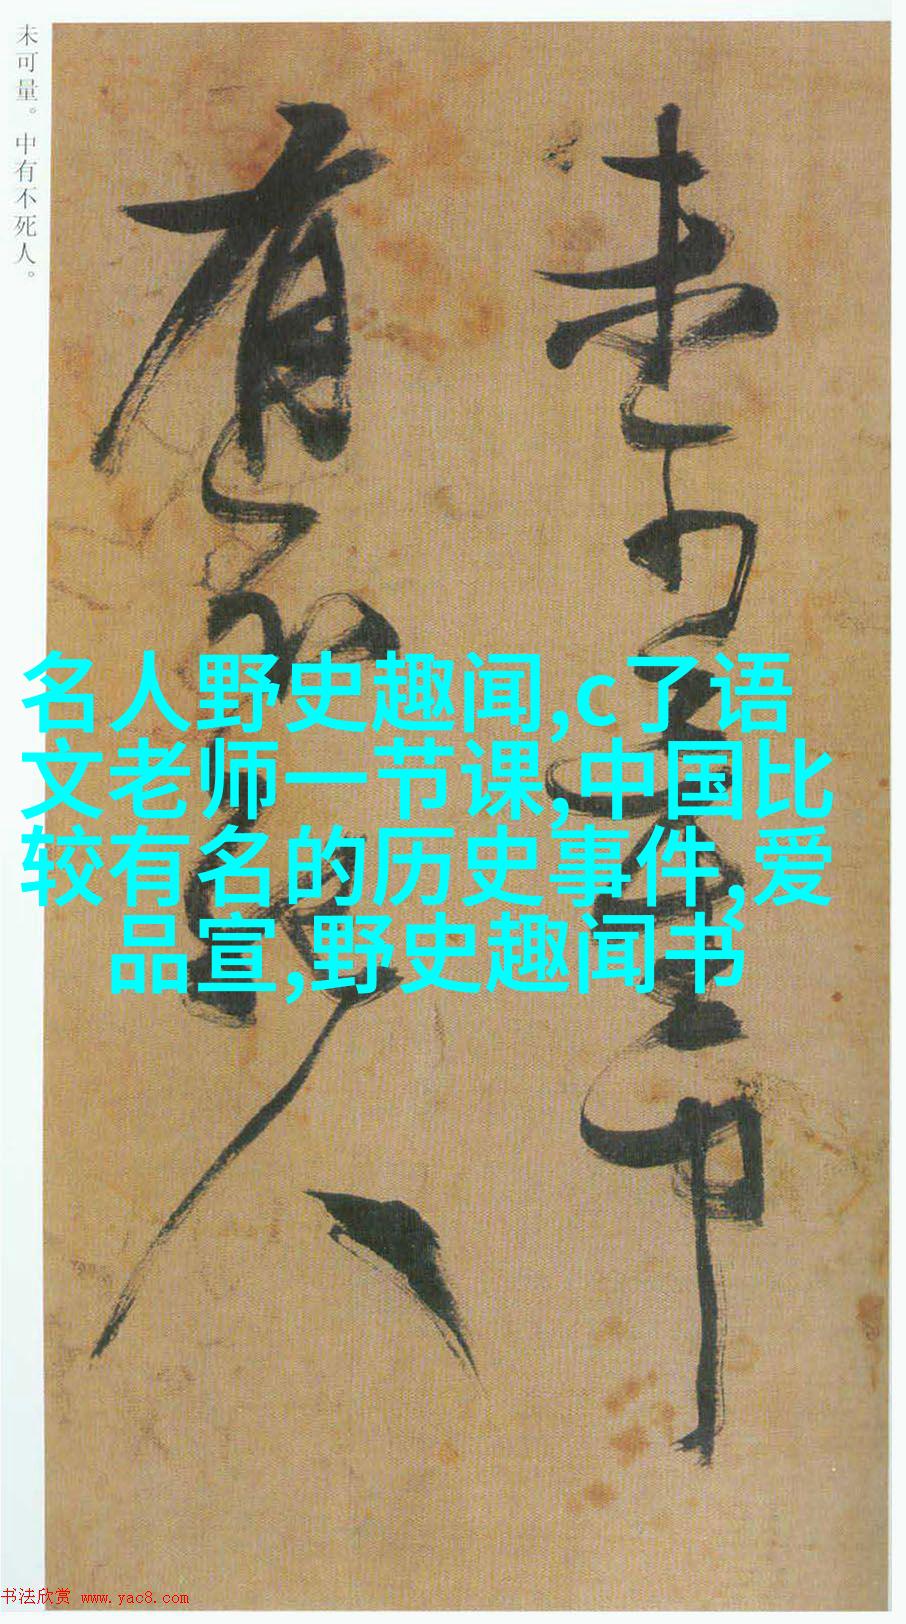 未可量。中有不死人。
未可量中
有不死人
名人野史趣闻,c了语
文老师一节课,中国比
较有名的历史事件,爱
品宣,野史趣闻书
书法欣赏 www.yac8.com